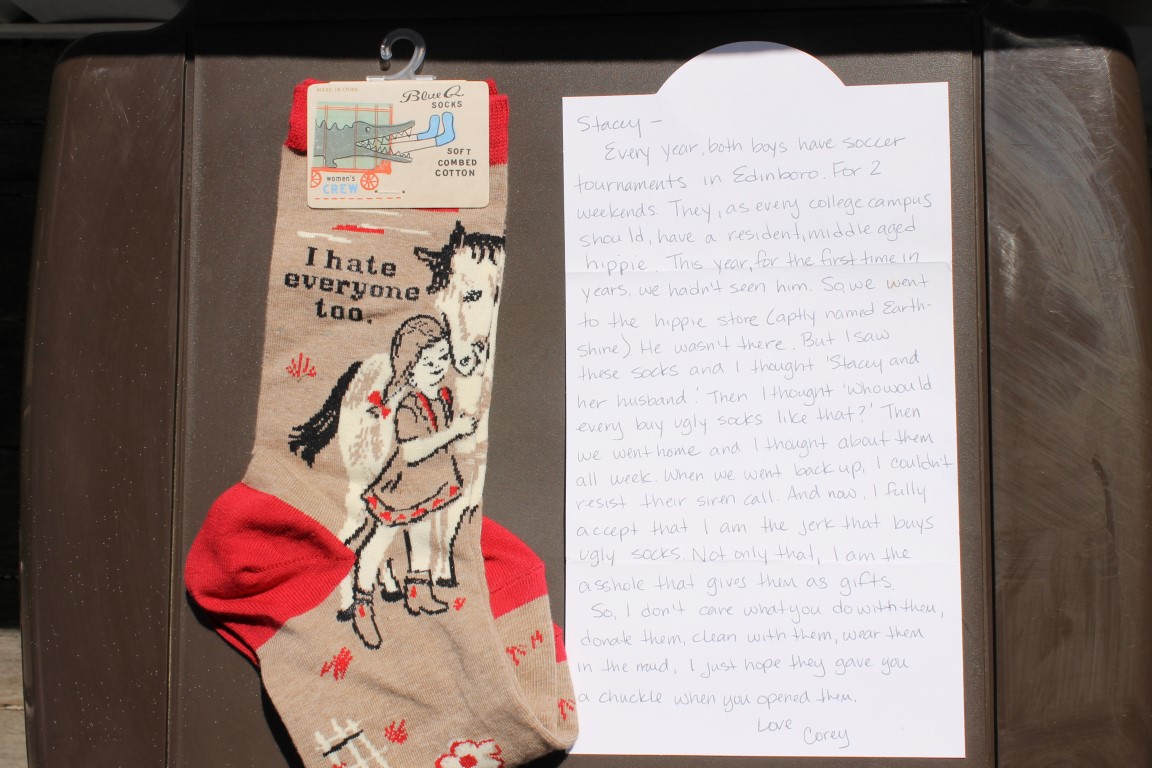 MADE IN CHINA
Blue Q
SOCKS
SOFT
COMBED
COTTON
women's
CREW
I hate
everyone
too.
Stacey –
Every year, both boys have soccer
tournaments in Edinboro. For 2
weekends. They, as every college campus
should, have a resident, middle aged
hippie. This year, for the first time in
years, we hadn't seen him. So, we went
to the hippie store (aptly named Earth-
shine) He wasn't there. But I saw
these socks and I thought 'Stacey and
her husband.' Then I thought 'who would
every buy ugly socks like that?' Then
we went home and I thought about them
all week. When we went back up, I couldn't
resist their siren call. And now, I fully
accept that I am the jerk that buys
ugly socks. Not only that, I am the
asshole that gives them as gifts.
So, I don't care what you do with them,
donate them, clean with them, wear them
in the mud, I just hope they gave you
a chuckle when you opened them.
Love
Corey